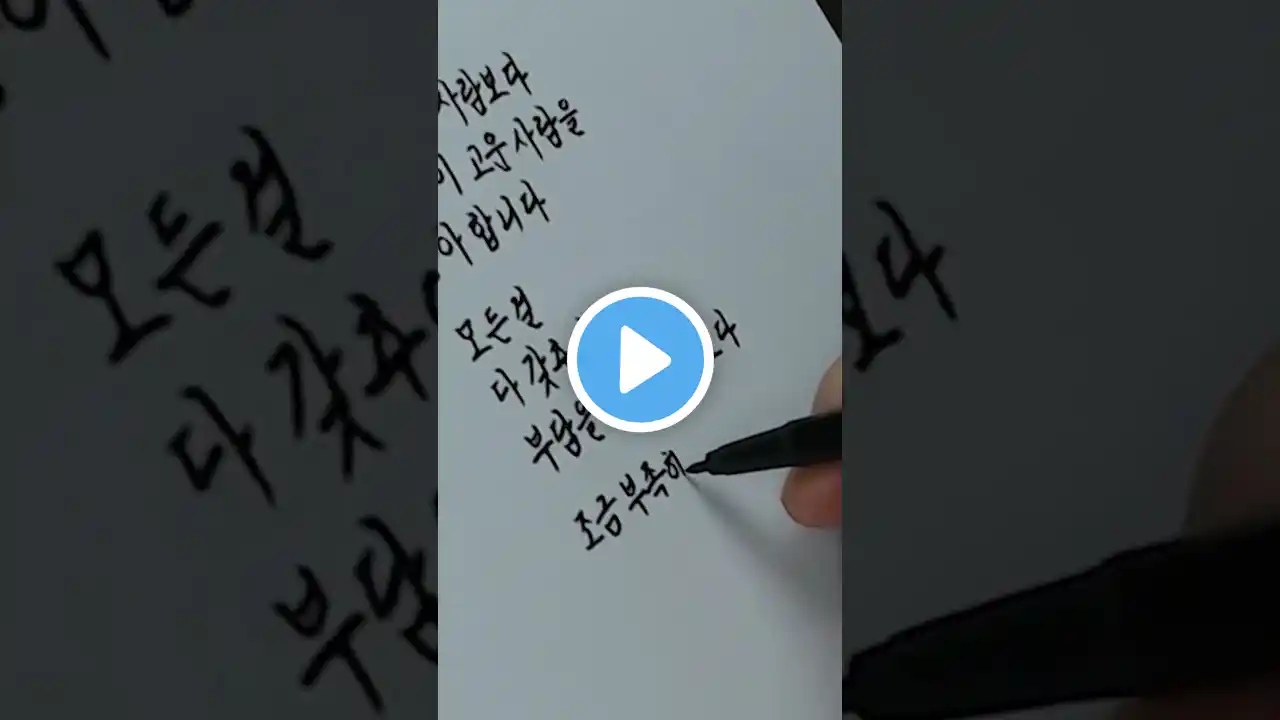 사람보다
이 고운 사람을
아 합니다
모든걸
다 갖추
부담을
조금 부족하